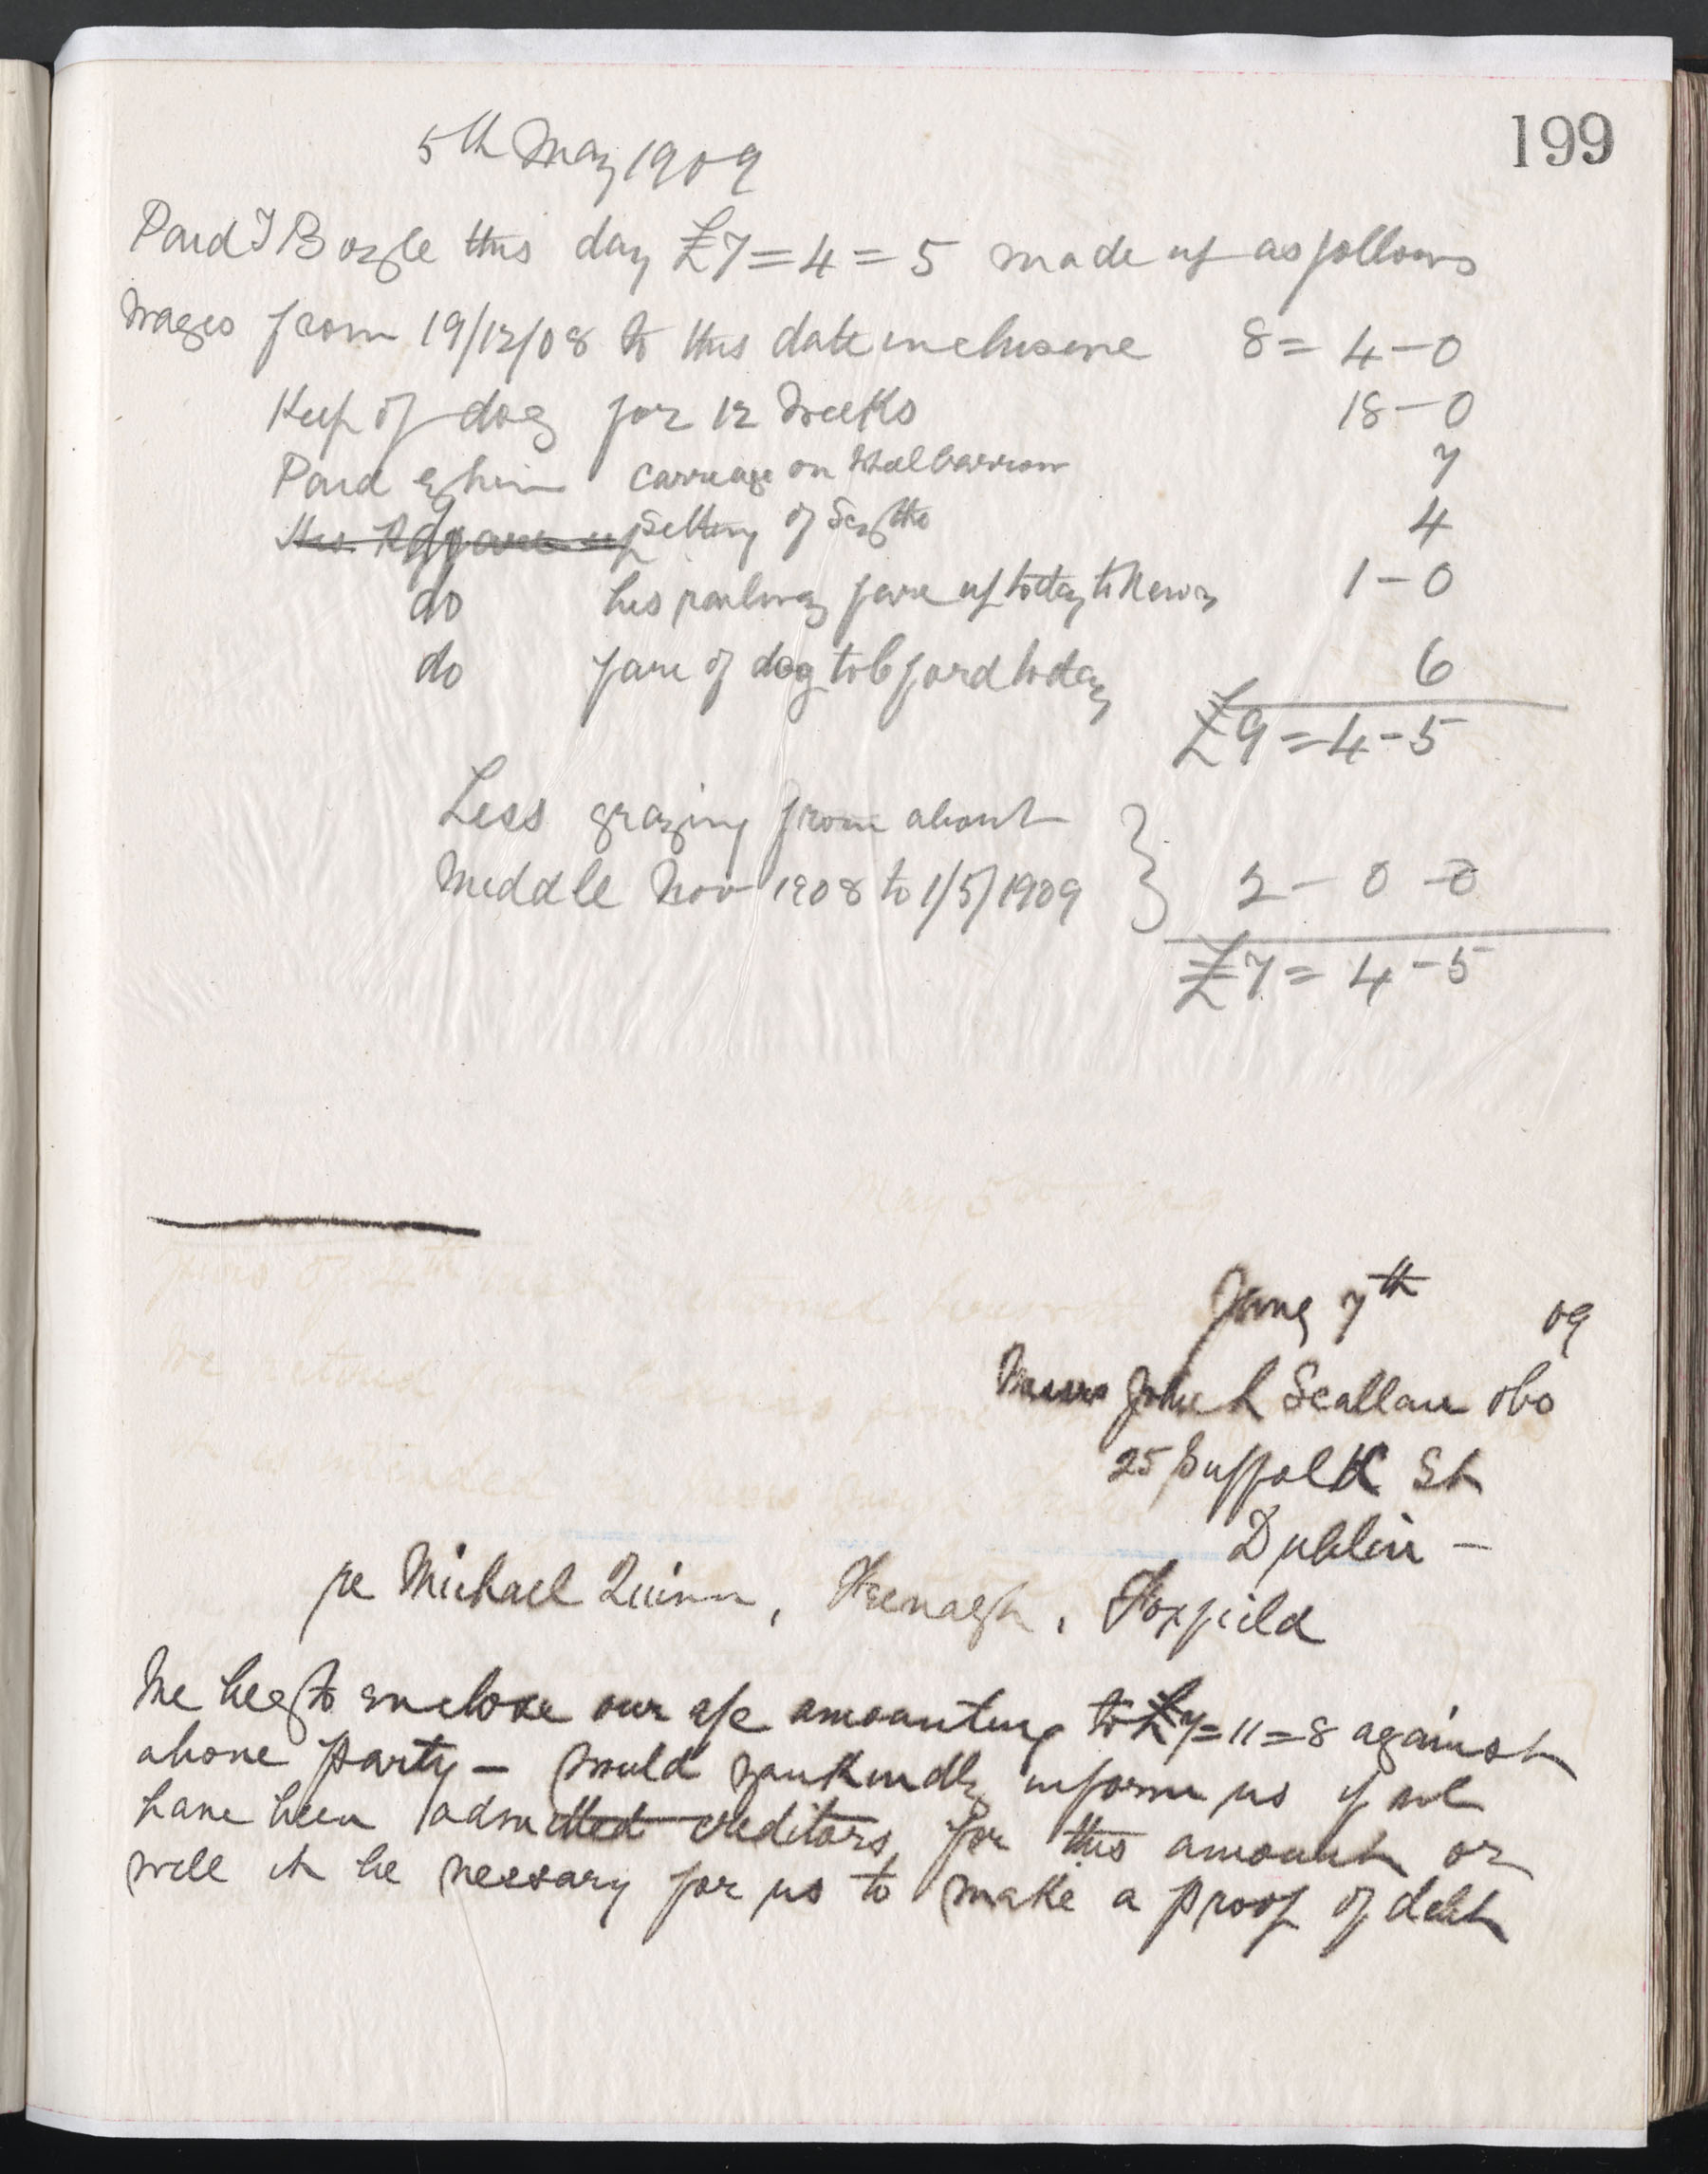 199
5th May 1909
Paid T Boyle this day £7=4=5 made up as follows
Wages from 19/12/08 to this date inclusive 8=4-0
Keep of dog for 12 Weeks 18-0
Paid by him carriage on Wheelbarrow 7
setting of Scythe 4
do his railway fare up today to Newry 1-0
do fare of dog to C ford today 6
£9=4-5
Less grazing from about
Middle Nov 1908 to 1/5/1909 } 2-0-0
£7=4-5
May 7th 09
Messrs John L Scallan & Co
25 Suffolk St
Dublin -
re Michael Quinn, Keenagh, Foxfield
We beg to enclose our a/c amounting to £7=11=8 against
above party - would you kindly inform us if we
have been admitted creditors for this amount or
will it be nessary for us to make a proof of debt